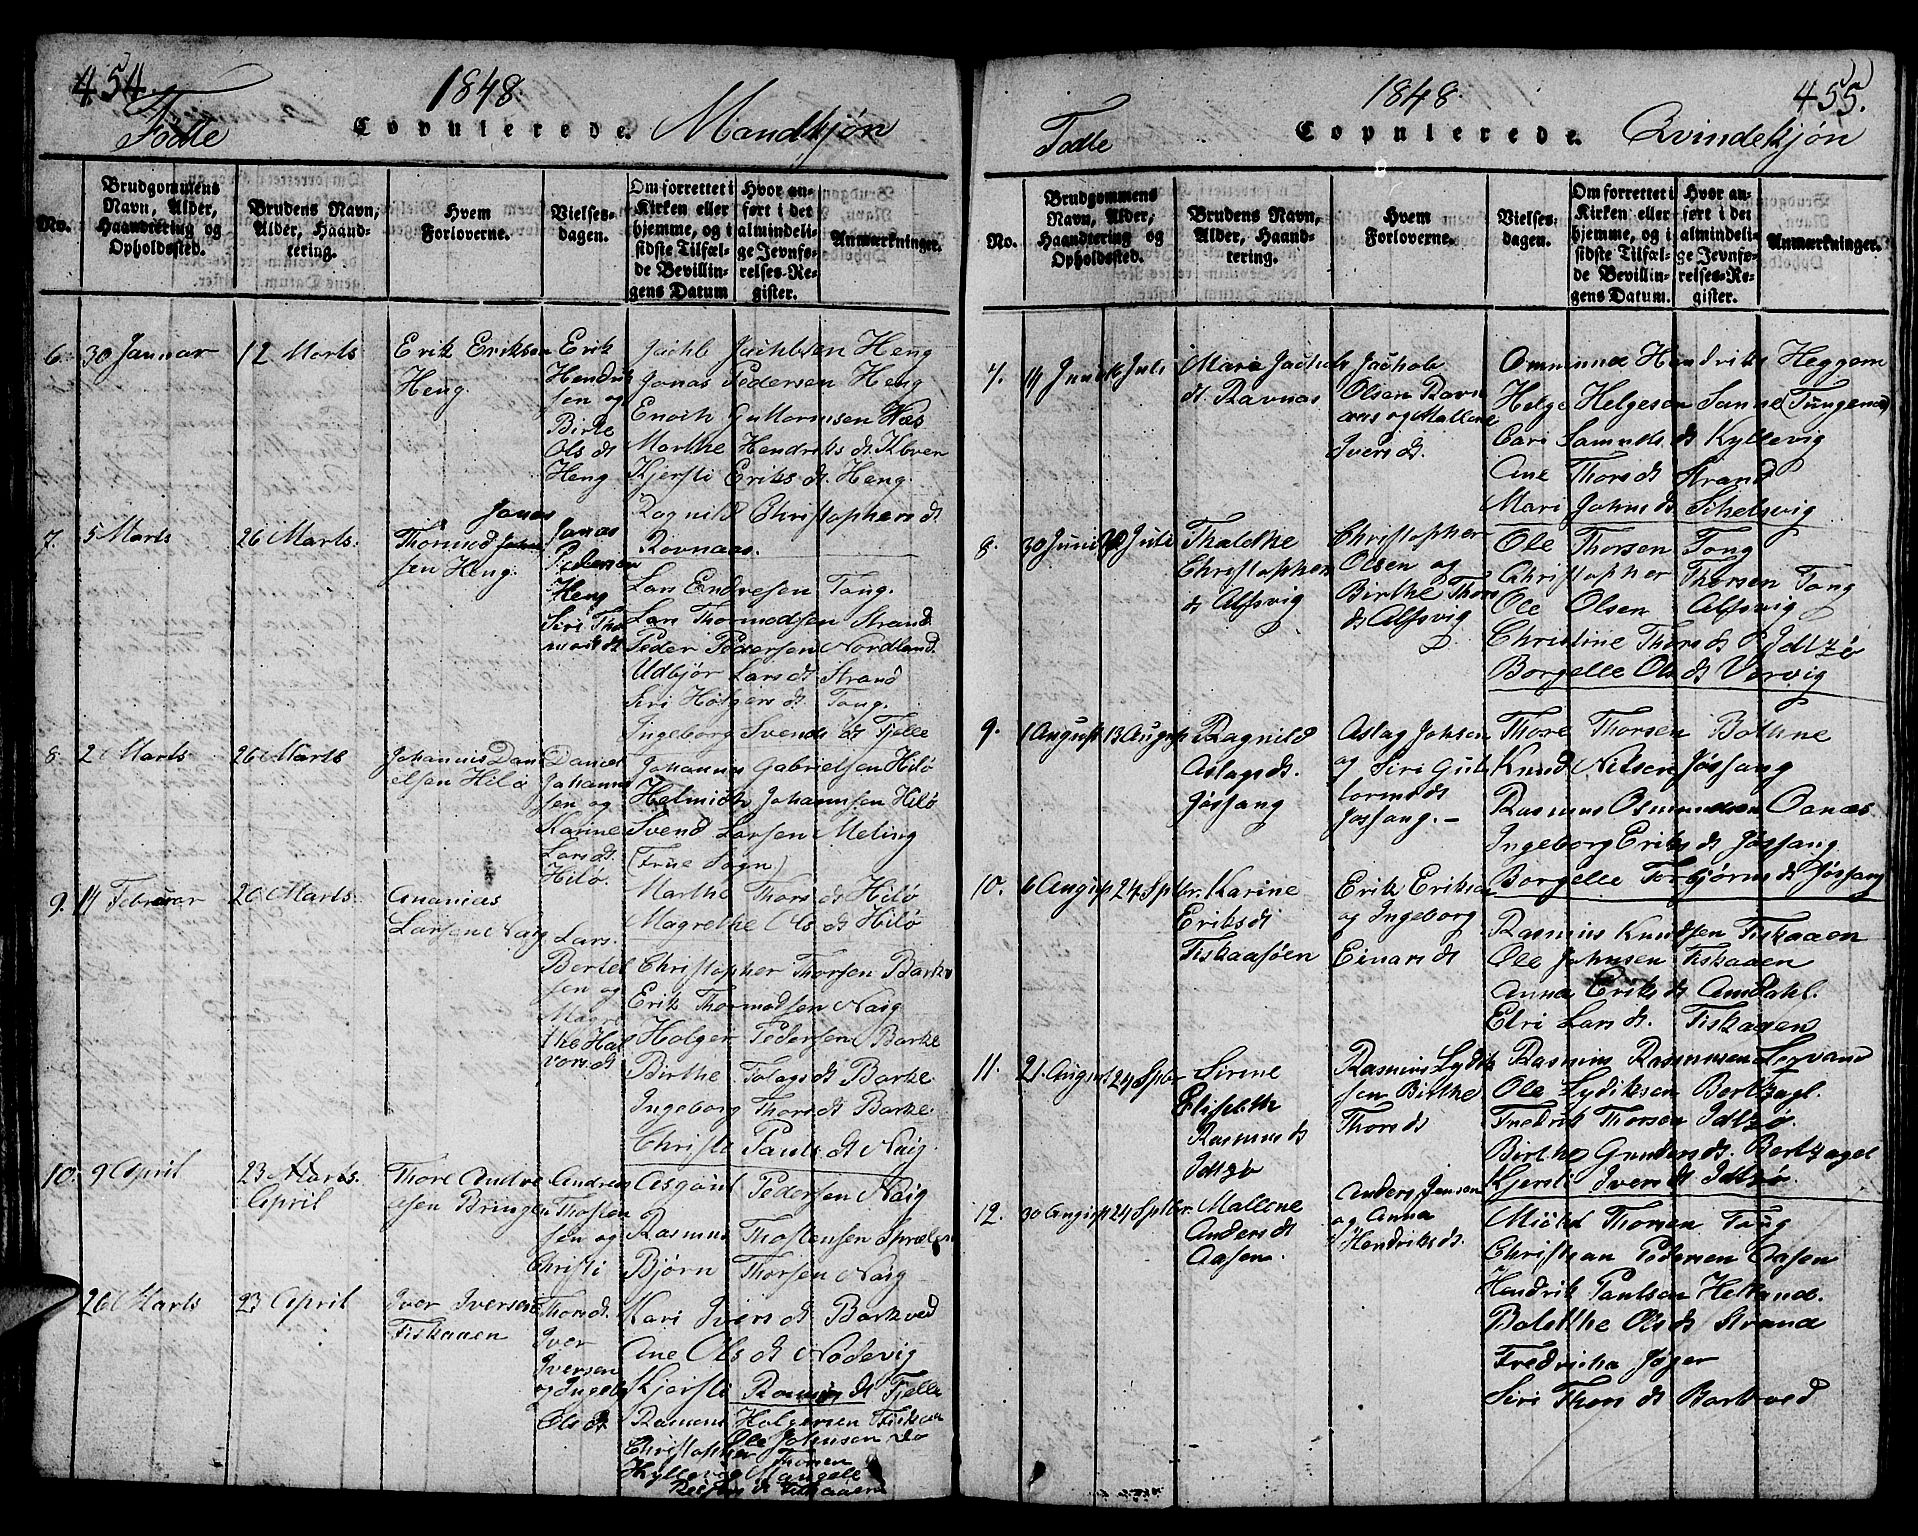 454.
1848.
Födte
Copulerede.
Mandkjøn
No.
Brudgommens Navn, Alder, Haandtering og Opholdssted.
Brudens Navn, Alder, Haandtering.
Hvem Forloverne.
Vielsesdagen.
Om forrettet i Kirken eller hjemme, og i sidste Tilfælde Bevillingens Datum
Hvor anført i det almindelige Jevnførelses-Register.
Anmærkninger.
6. 30 Januar
12 Marts
Erik Eriksen
Heng.
Erik
Hendrik
sen og
Birte
Ols dt
Heng
Jachb Jachbsen Heng
Jonas Pedersen Heng
Enoch Guttormsen Næs
Marthe Hendriks dt.
Kjersti Eriks dt Heng.
Ragnild Christophers dt
Rovnaas.
7. 5 Marts
26 Marts.
Jonas
Thormod
sen Heng.
Jonas
Pedersen
Heng
Siri Tho
mods dt
Lars Endresen Tang.
Lars Thormodsen Strand.
Peder Pedersen Nordland
Udbjør Lars dt Strand
Siri Holgers dt Tang.
Ingeborg Svends dt Fjelle
8. 2 Marts
26 Marts
Johannis Dan
elsen Hilø
Daniel
Johanns
sen og
Karine
Lars dt.
Hilø.
Johannes Gabrielsen Hilø
Helmich Johannsen Hilø
Svend Larsen Meling
(Frue Sogn)
Marthe Thors dt Hilø
Magrethe Ols dt Hilø
9. 14 Februar
26 Marts.
Ananias
Larsen Naig
Lars.
Bertel
sen og
Magre
the Hal
vors dt
Christopher Thorsen Barke
Erik Thormodsen Naig
Holger Pedersen Barke
Birthe Tolags dt Barke.
Ingeborg Thors dt Barke.
Christi Pauls dt Naig.
10. 9 April
23 Marts.
April
Thore Andre
asen Bringen
Andreas
Thosten
sen og
Christi
Thors dt.
Asgaut Pedersen Naig
Rasmus Thostensen
Bjørn Thorsen Naig
Kari Ivers dt Barkved
Ane Ols dt Nodevig
Kjersti Rasmus dt Fjelle
26 Marts
23 April
Ivor Iversen
Fiskaaen
Ivor
Iversen
og Ingeb
Ols dt
Rasmus Holgersen Fiskaaen
Ole Johnsen do
Christopher Thorsen
Kyllevig
455.
1848.
Födte
Copulerede.
Qvindekjøn
No.
Brudgommens Navn, Alder, Haandtering og Opholdssted.
Brudens Navn, Alder, Haandtering.
Hvem Forloverne.
Vielsesdagen.
Om forrettet i Kirken eller hjemme, og i sidste Tilfælde Bevillingens Datum.
Hvor anført i det almindelige Jevnførelses-Register.
Anmærkninger.
7. 14 Juni
16 Juli
Mari Jachobs
dt Ravnas
Jachob
Olsen Ravn
aas og Mallene
Ivers dt.
Ommund Hendriks Heggem
Helge Helgesen Sanne (Tungenæs)
Cari Samuds dt Kyllevig
Ane Thors dt Strand
Mari Johns dt Schelsvig
8. 30 Juni
Juli
Thalethe
Christopher
dt Alfsvig
Christopher
Olsen og
Birthe Thors
dt Alfsvig
Ole Thorsen Tong
Christopher Thorsen Tang
Ole Olsen Alfsvig
Christine Thors dt Idtzø
Borgelle Ols dt Vorvig
9. 1 August
13 August
Ragnild
Aslags dt.
Jøssang
Aslag Johsen
og Siri Gut
torms dt
Jossang.
Thore Thorsen Bothne
Knud Nilsen Jøssang
Rasmus Osmundsen Oanæs
Ingeborg Eriks dt Jøssang.
Borgelle Torbjørns dt Jøssang
10. 6 August
24 Sptbr.
Karine
Eriks dt
Fiskaasøen
Erik Eriksen
og Ingeborg
Einars dt
Rasmus Knudsen Fiskaaen
Ole Johnsen Fiskaaen
Anna Eriks dt Amdahl.
Elri Lars dt. Fiskaaen
11. 21. August
24 Sptbr
Sirene
Eliseth
Rasmus dt
Idtzø
Rasmus Lydik
sen Birthe
Thors dt
Rasmus Rasmussen Lervand
Ole Lydiksen Bertzagl.
Fredrik Thorsen Idtzø.
Birthe Gunders dt. Bertzagel
Kjersti Ivers dt Idtzø.
12. 30 August
24 Sptbr.
Mallene
Anders dt
Aasen.
Anders Jensen
og Anna
Hendriks dt.
Michel Thorsen Taug
Christian Pedersen Aasen
Hendrik Paulsen Helland.
Bolethe Ols dt Strand
Fredricha Jøger
Siri Thors dt Barkved